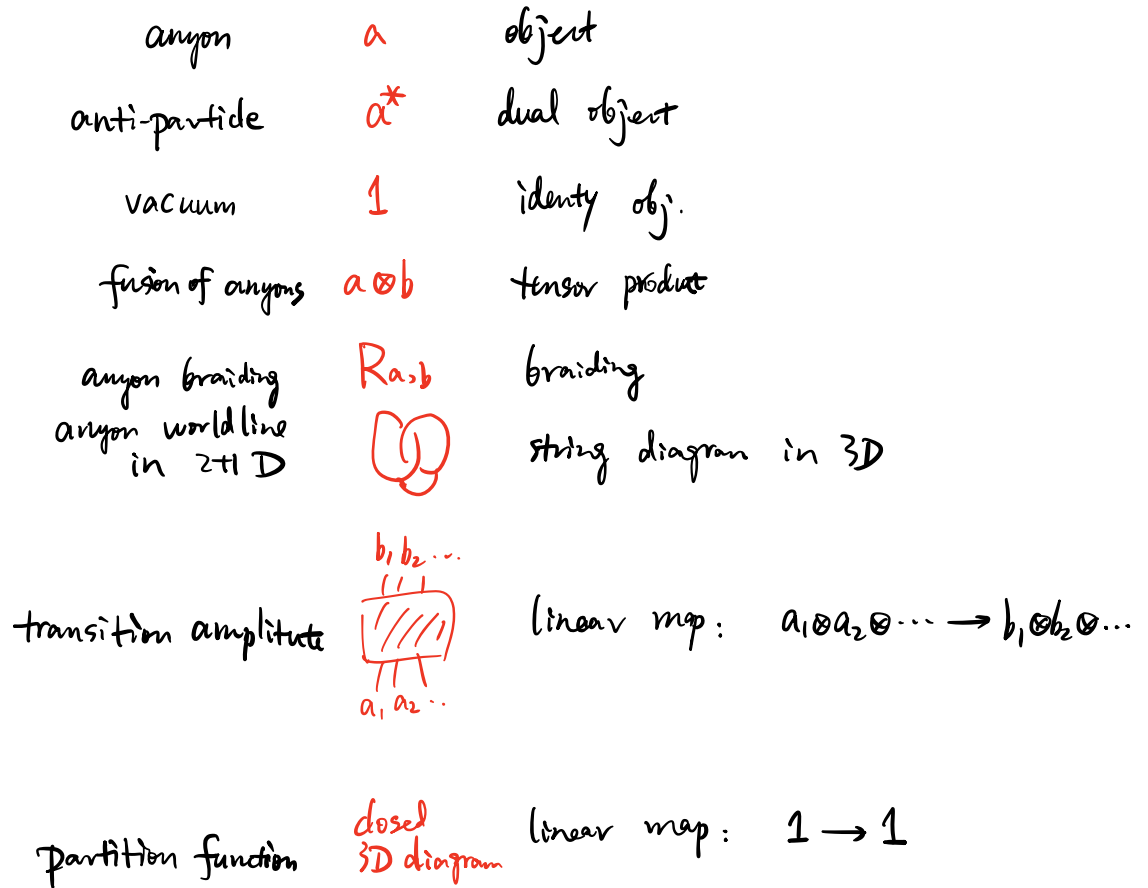 anyon a object
anti-particle a* dual object
vacuum 1 identy obj.
fusion of anyons a⊗b tensor product
anyon braiding Ra,b braiding
anyon worldline
in 2+1 D string diagram in 3D
b1 b2 ...
transition amplitute linear map: a1⊗a2⊗··· → b1⊗b2⊗...
a1 a2 ..
closed
3D diagram
partition function linear map: 1 → 1